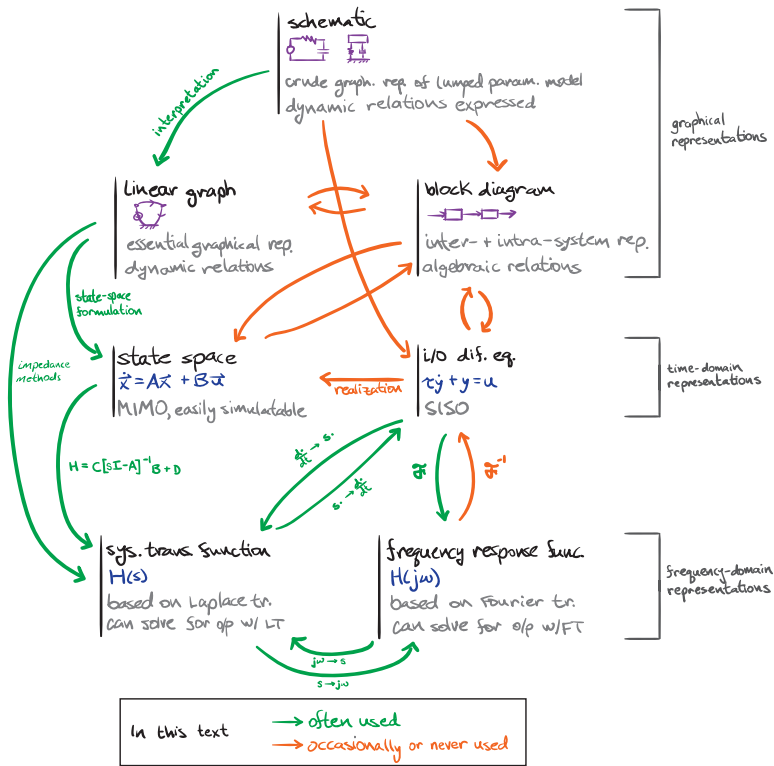 schematic
crude graph. rep. of lumped param. model
dynamic relations expressed
graphical
representations
interpretation
linear graph
essential graphical rep.
dynamic relations
block diagram
inter- + intra-system rep.
algebraic relations
state-space
formulation
impedance
methods
state space
ẋ⃗ = Ax⃗ + Bu⃗
MIMO, easily simulatable
realization
i/o dif. eq.
τẏ + y = u
SISO
time-domain
representations
H = C[sI-A]⁻¹B + D
d·/dt → s·
s· → d·/dt
ℱ
ℱ⁻¹
sys. trans. function
H(s)
based on Laplace tr.
can solve for o/p w/ LT
frequency response func.
H(jω)
based on Fourier tr.
can solve for o/p w/FT
frequency-domain
representations
jω → s
s → jω
In this text
often used
occasionally or never used